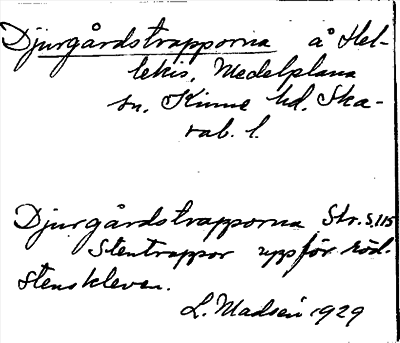 Djurgårdstrapporna å Hel-
lekis, Medelplana
sn. Kinne hd. Ska-
rab. l.
Djurgårdstrapporna Str. s. 115
Stentrappor uppför röd-
stenskleven.
L. Madsén 1929